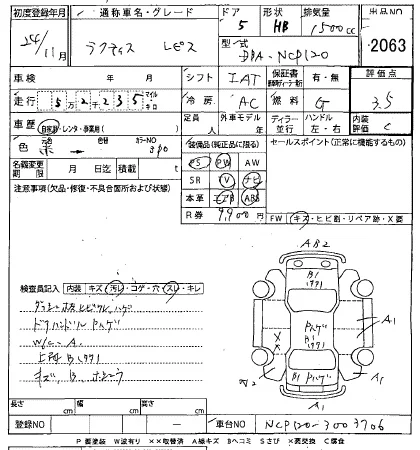 初度登録年月 通称車名・グレード ドア 形状 排気量 出品NO
24/11月 ラクティス レピス 5 HB 1500cc
型式 DBA-NCP120 2063
車検 年 月 シフト IAT 保証書 有・無 評価点
走行 5万2千235 マイル キロ 冷房 AC 燃料 G 3.5
車歴 自家用・レンタ・事業用( ) 定員 人 外車モデル 年 ディーラー 並行 ハンドル 左・右 内装評価 C
色 → 色 カラーNO
名義変更期限 月 日迄 積載 t
装備品(純正品に限る) セールスポイント(正常に機能するもの)
PS PW AW
SR TV ナビ
本革 エアB ABS
R券 9,900円
注意事項(欠品・修復・不具合箇所および状態)
FW キズ・ヒビ割・リペア跡・X要
検査員記入 内装 キズ・汚レ・コゲ・穴・スレ・キレ
ドアハンドル Pハゲ
W/C A1
キズ、B
AB2
B1
Pハゲ
B1
A1
W2
A1
A1
長さ cm 幅 cm 高さ cm
登録NO 車台NO NCP120-3003706
P 要塗装 W波有り ××取替済 A線キズ Bヘコミ Sさび ×要交換 C腐食